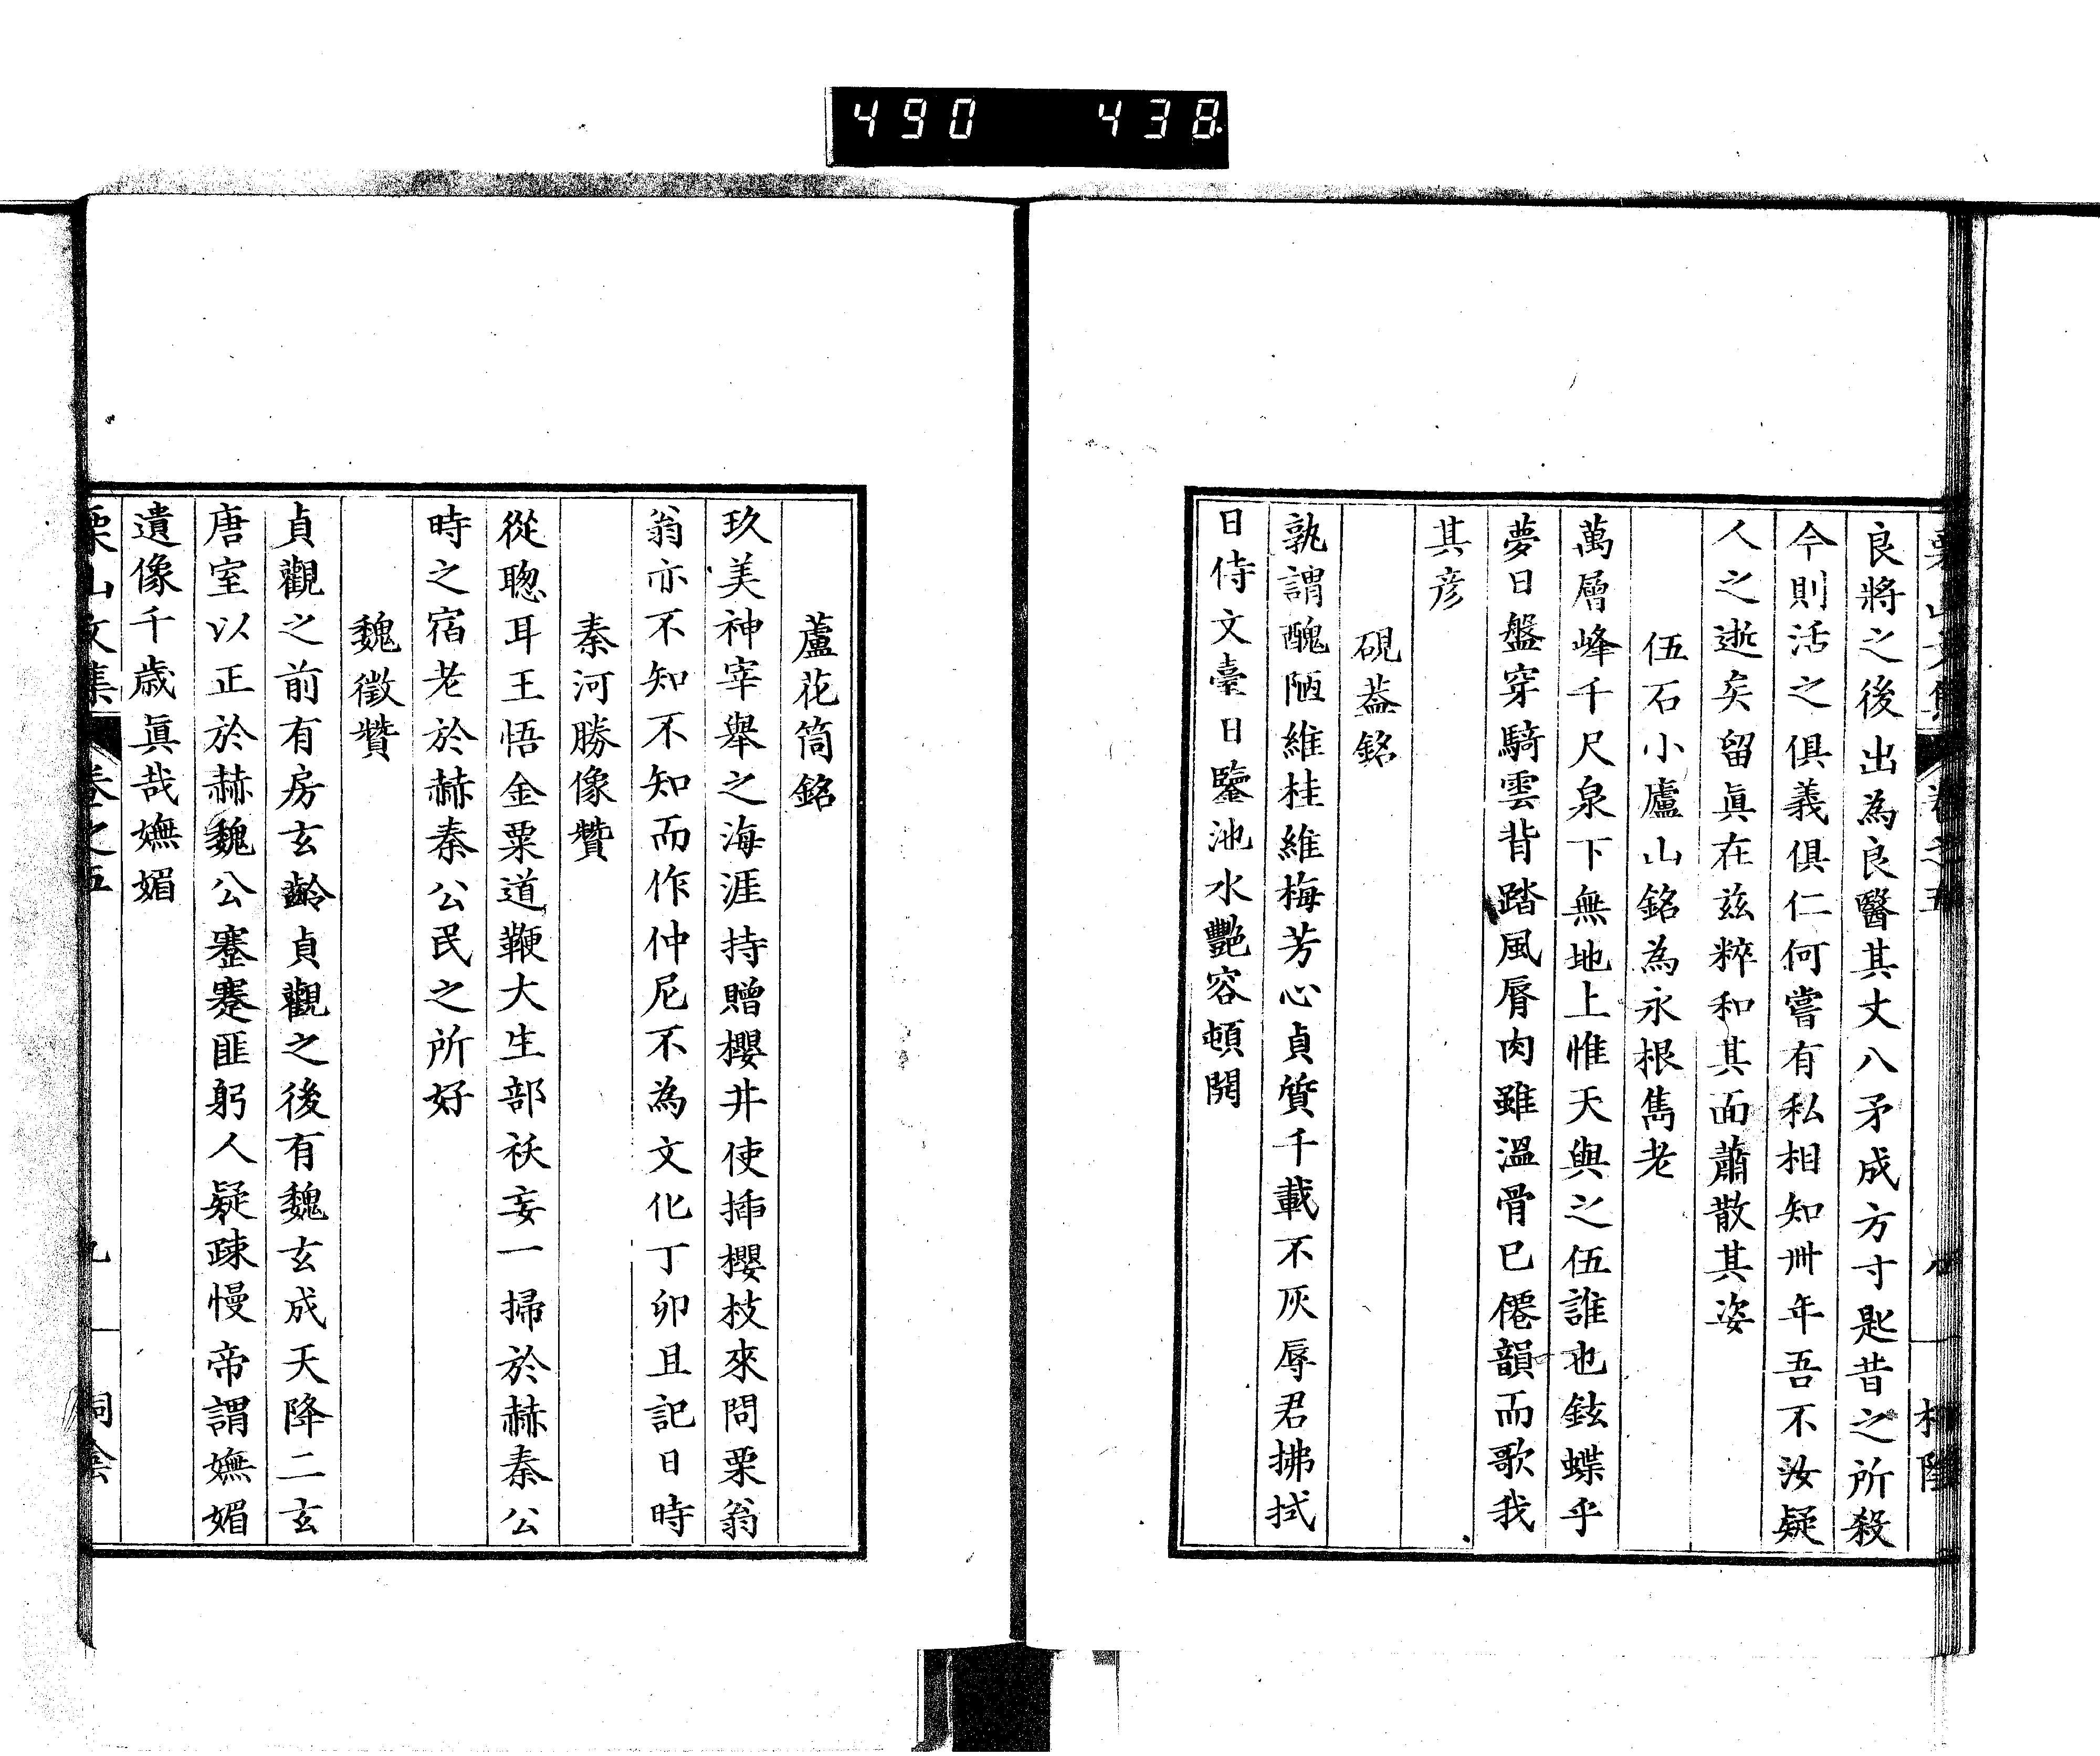 490 438
良將之後出為良醫其丈八矛成方寸匙昔之所殺
今則活之俱義俱仁何嘗有私相知卅年吾不汝疑
人之逝矣留眞在兹粹和其面蕭散其姿
伍石小廬山銘為永根雋老
萬層峰千尺泉下無地上惟天與之伍誰也鉉蝶乎
夢日盤穿騎雲背踏風脣肉雖溫骨已僊韻而歌我
其彦
硯葢銘
孰謂醜陋維桂維梅芳心貞質千載不灰辱君拂拭
日侍文臺日鑒池水艷容頓開
蘆花筒銘
玖美神宰舉之海涯持贈櫻井使揷櫻枝來問栗翁
翁亦不知不知而作仲尼不為文化丁卯且記日時
秦河勝像贊
從聰耳王悟金粟道鞭大生部祅妄一掃於赫秦公
時之宿老於赫秦公民之所好
魏徵贊
貞觀之前有房玄齡貞觀之後有魏玄成天降二玄
唐室以正於赫魏公蹇蹇匪躬人疑疎慢帝謂嫵媚
遺像千歳眞哉嫵媚
栗山文集 卷之五 九